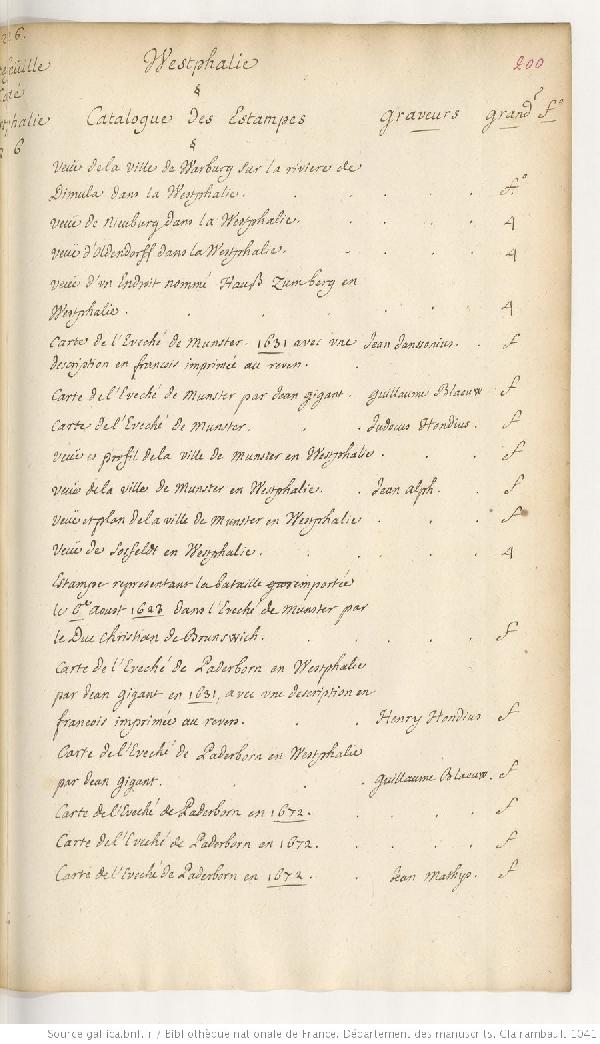 Westphalie
200
§
Catalogue Des Estampes graveurs grand.r f.o
§
veüe de la ville de Warburg sur la riviere de
Dimula dans la Westphalie. f.o
veüe de Nieuburg dans la Westphalie. 4
veüe d'Oldendorff dans la Westphalie. 4
veüe d'un Endroit nommé Hauß Zumberg en
Westphalie. 4
Carte de l'Eveché de Munster. 1631 avec une Jean Janssonius. f
description en francois imprimée au revers.
Carte de l'Eveché de Munster par Jean gigant. guillaume Blaeuw. f
Carte de l'Eveché de Munster. Judocus Hondius. f
veüe et profil de la ville de Munster en Westphalie. f
veüe de la ville de Munster en Westphalie. Jean Alph. f
veüe et plan de la ville de Munster en Westphalie. f
veüe de Sosfeldt en Westphalie. 4
Estampe representant la bataille emportée
le 6.e Aoust 1623 Dans l'Eveché de Munster par
le Duc Christian de Brunswich. f
Carte de l'Eveché de Paderborn en Westphalie
par Jean gigant en 1631, avec une description en
francois imprimée au revers. Henry Hondius f
Carte de l'Eveché de Paderborn en Westphalie
par Jean gigant. guillaume Blaeuw. f
Carte de l'Eveché de Paderborn en 1672. f
Carte de l'Eveché de Paderborn en 1672. f
Carte de l'Eveché de Paderborn en 1672. Jean Mathys. f
Source gallica.bnf.fr / Bibliothèque nationale de France. Département des manuscrits. Clairambault 1041